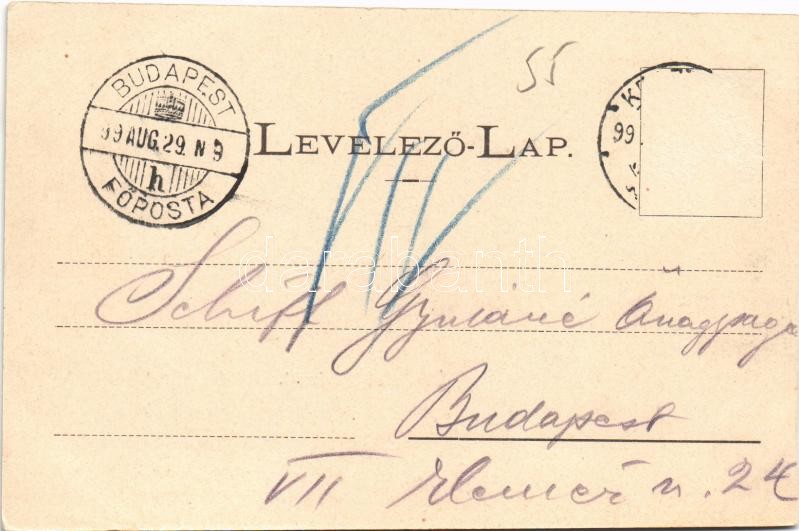 55
BUDAPEST
99 AUG. 29. N 9
h
FŐPOSTA
LEVELEZŐ-LAP.
99
darabanth
Schiff Gyuláné Őnagysága
Budapest
VII Elemér u. 24